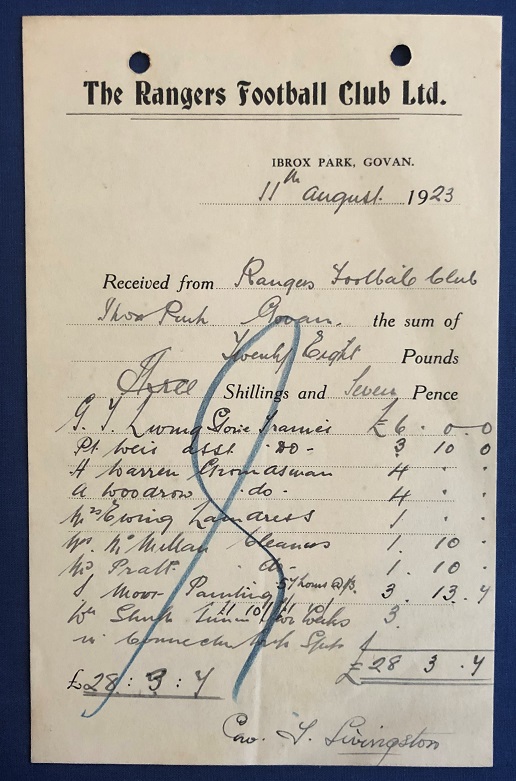 The Rangers Football Club Ltd.
IBROX PARK, GOVAN.
11th August 1923
Received from Rangers Football Club
Ibrox Park Govan. the sum of
Twenty Eight Pounds
Three Shillings and Seven Pence
G. T. Livingstone Trainer £6 . 0 . 0
Pt. Weis asst -do- 3 10 0
A Warren Groundsman 4 . .
A Woodrow . do . 4 . .
Mrs Ewing Laundress 1 . .
Mrs McMillan Cleaners 1 . 10 .
Mrs Pratt. do 1 . 10 .
J Moor Painting 57 hours @ 3 . 13 . 7
Wm Two Weeks 3 .
in Sports
£28 3 . 7
£28 : 3 : 7
Geo. T. Livingston